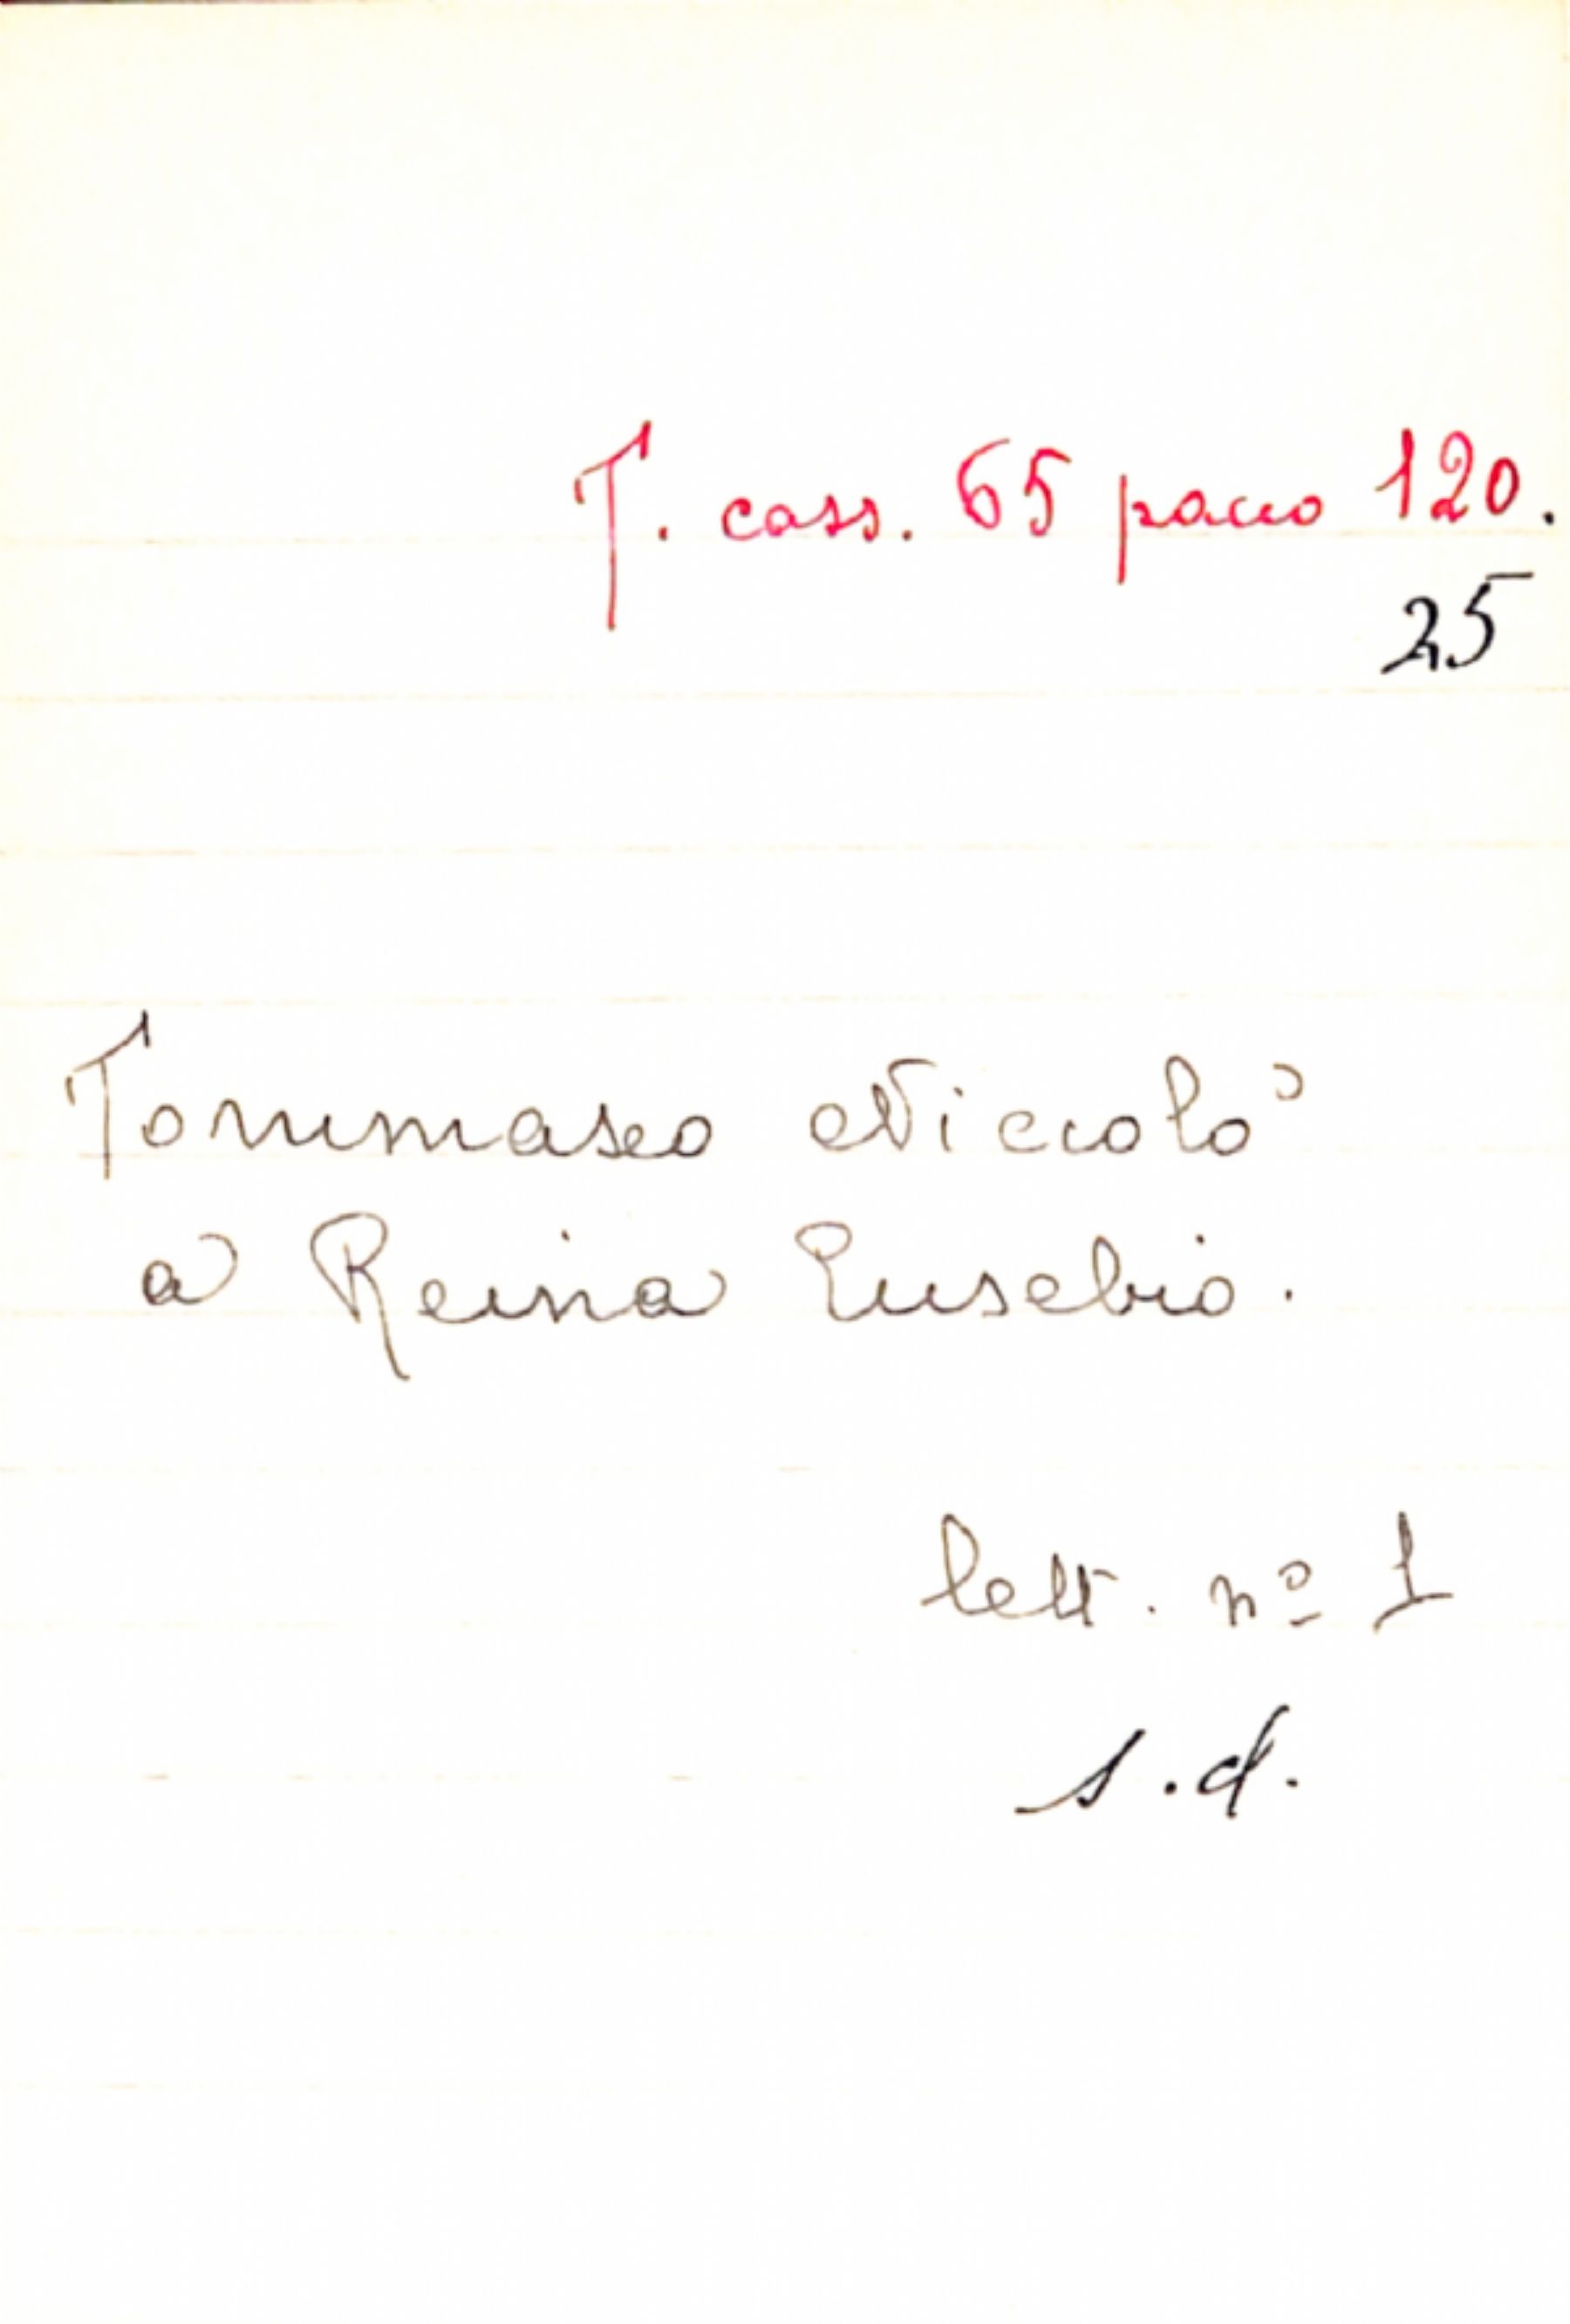 T. cass. 65 pacco 120.
25
Tommaseo Niccolò
a Reina Eusebio.
lett. nº 1
s.d.